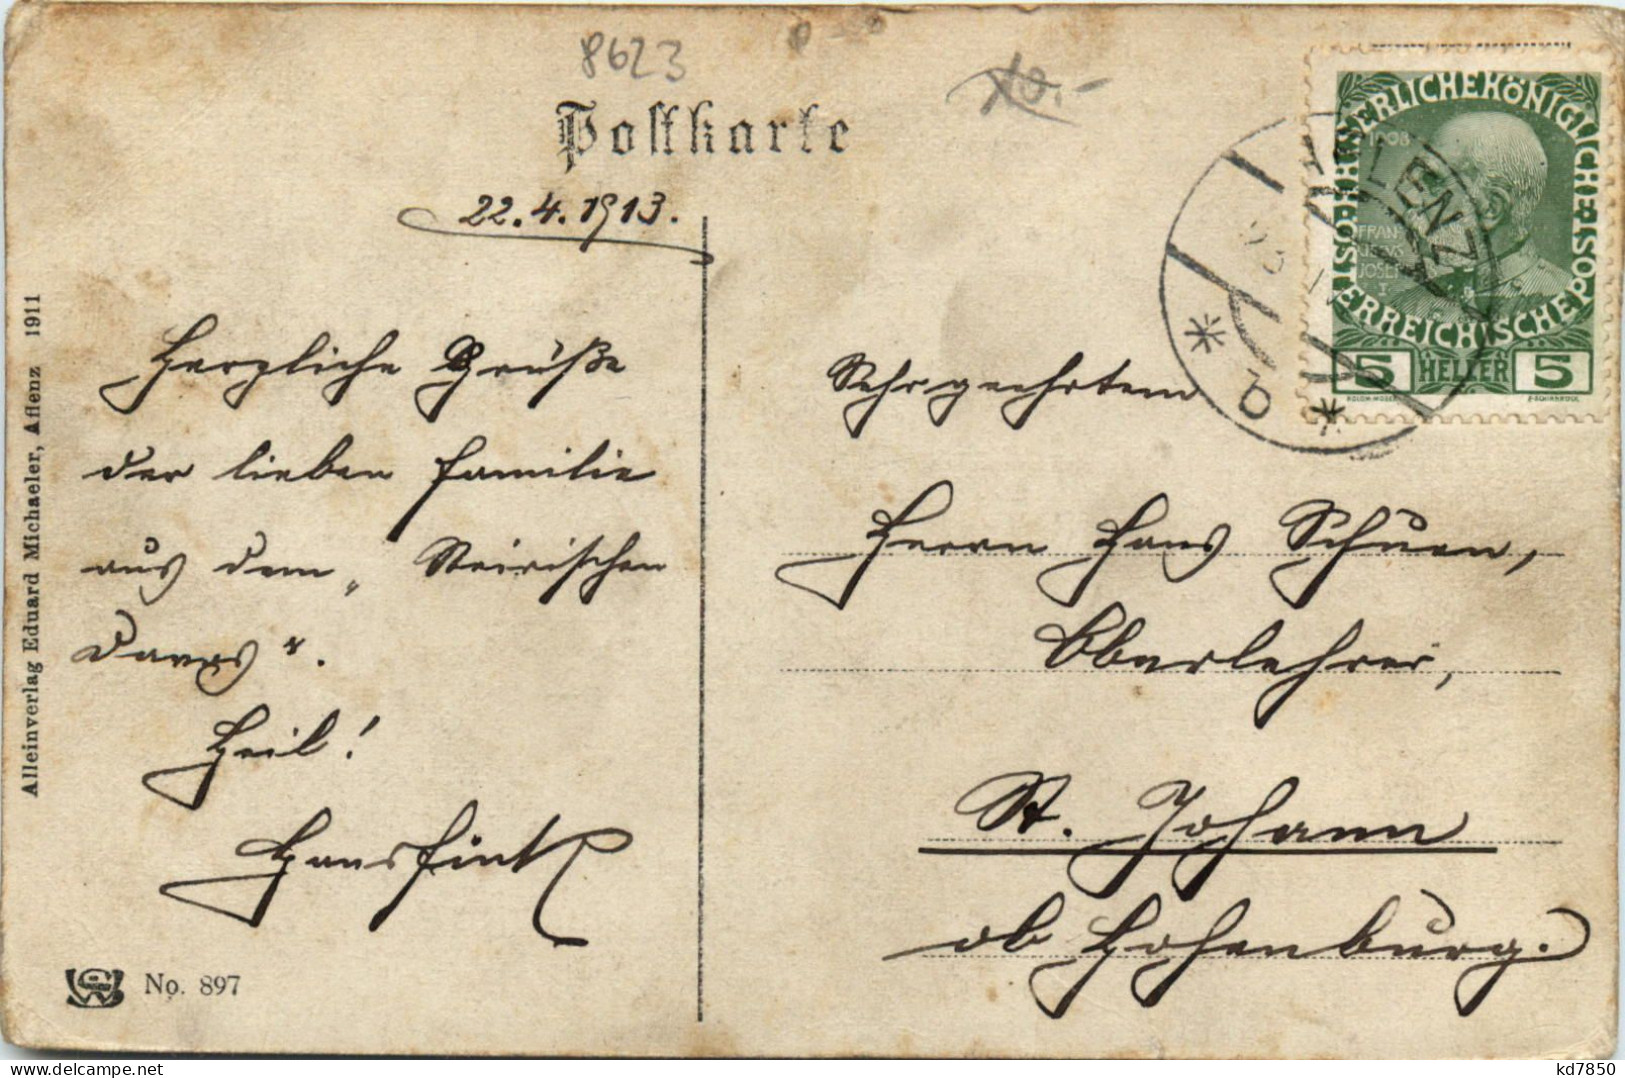 8623
Postkarte
22.4.1913.
Herzliche Grüße
der lieben Familie
aus dem „Steirischen
Davos“.
Heil!
Hans
No. 897
Alleinverlag Eduard Michaeler, Aflenz 1911
KAISERLICHEKÖNIGLICHE ÖSTERREICHISCHEPOST
1908
FRAN
CISCVS
JOSEF
I
5 HELLER 5
AFLENZ
Sehr geehrtem
Herrn Hans Schuen,
Oberlehrer,
St. Johann
ob Hohenburg.
kd7850